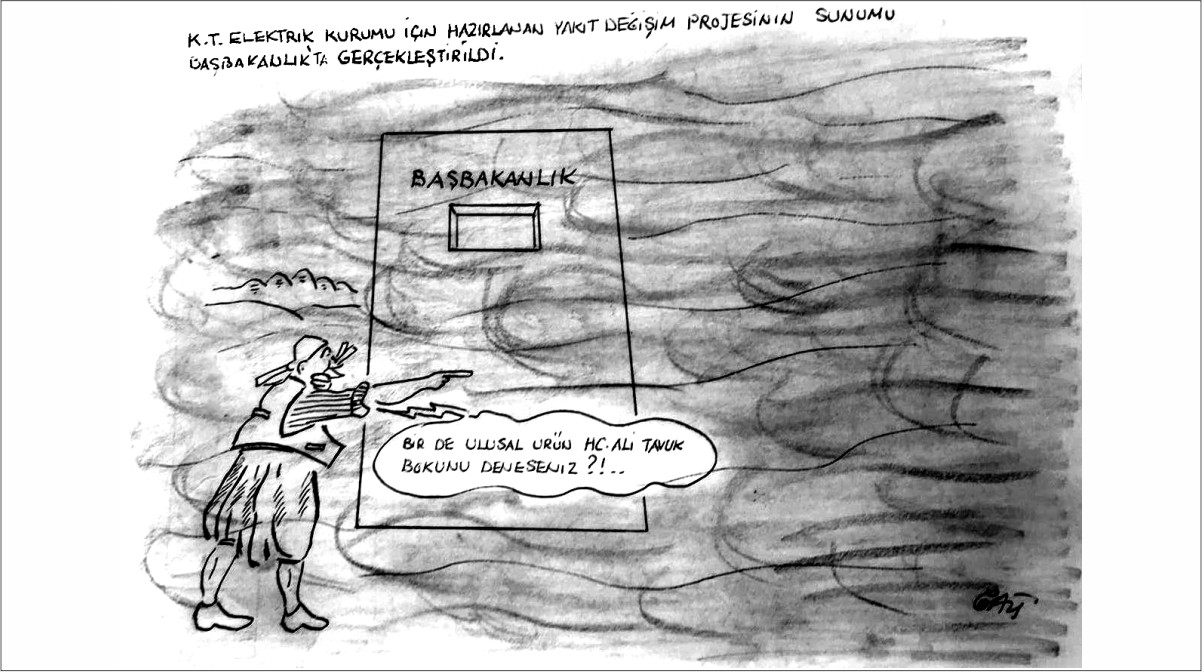 K.T. ELEKTRİK KURUMU İÇİN HAZIRLANAN YAKIT DEĞİŞİM PROJESİNİN SUNUMU
BAŞBAKANLIK'TA GERÇEKLEŞTİRİLDİ.
BAŞBAKANLIK
BİR DE ULUSAL ÜRÜN HC. ALİ TAVUK
BOKUNU DENESENİZ ?!...